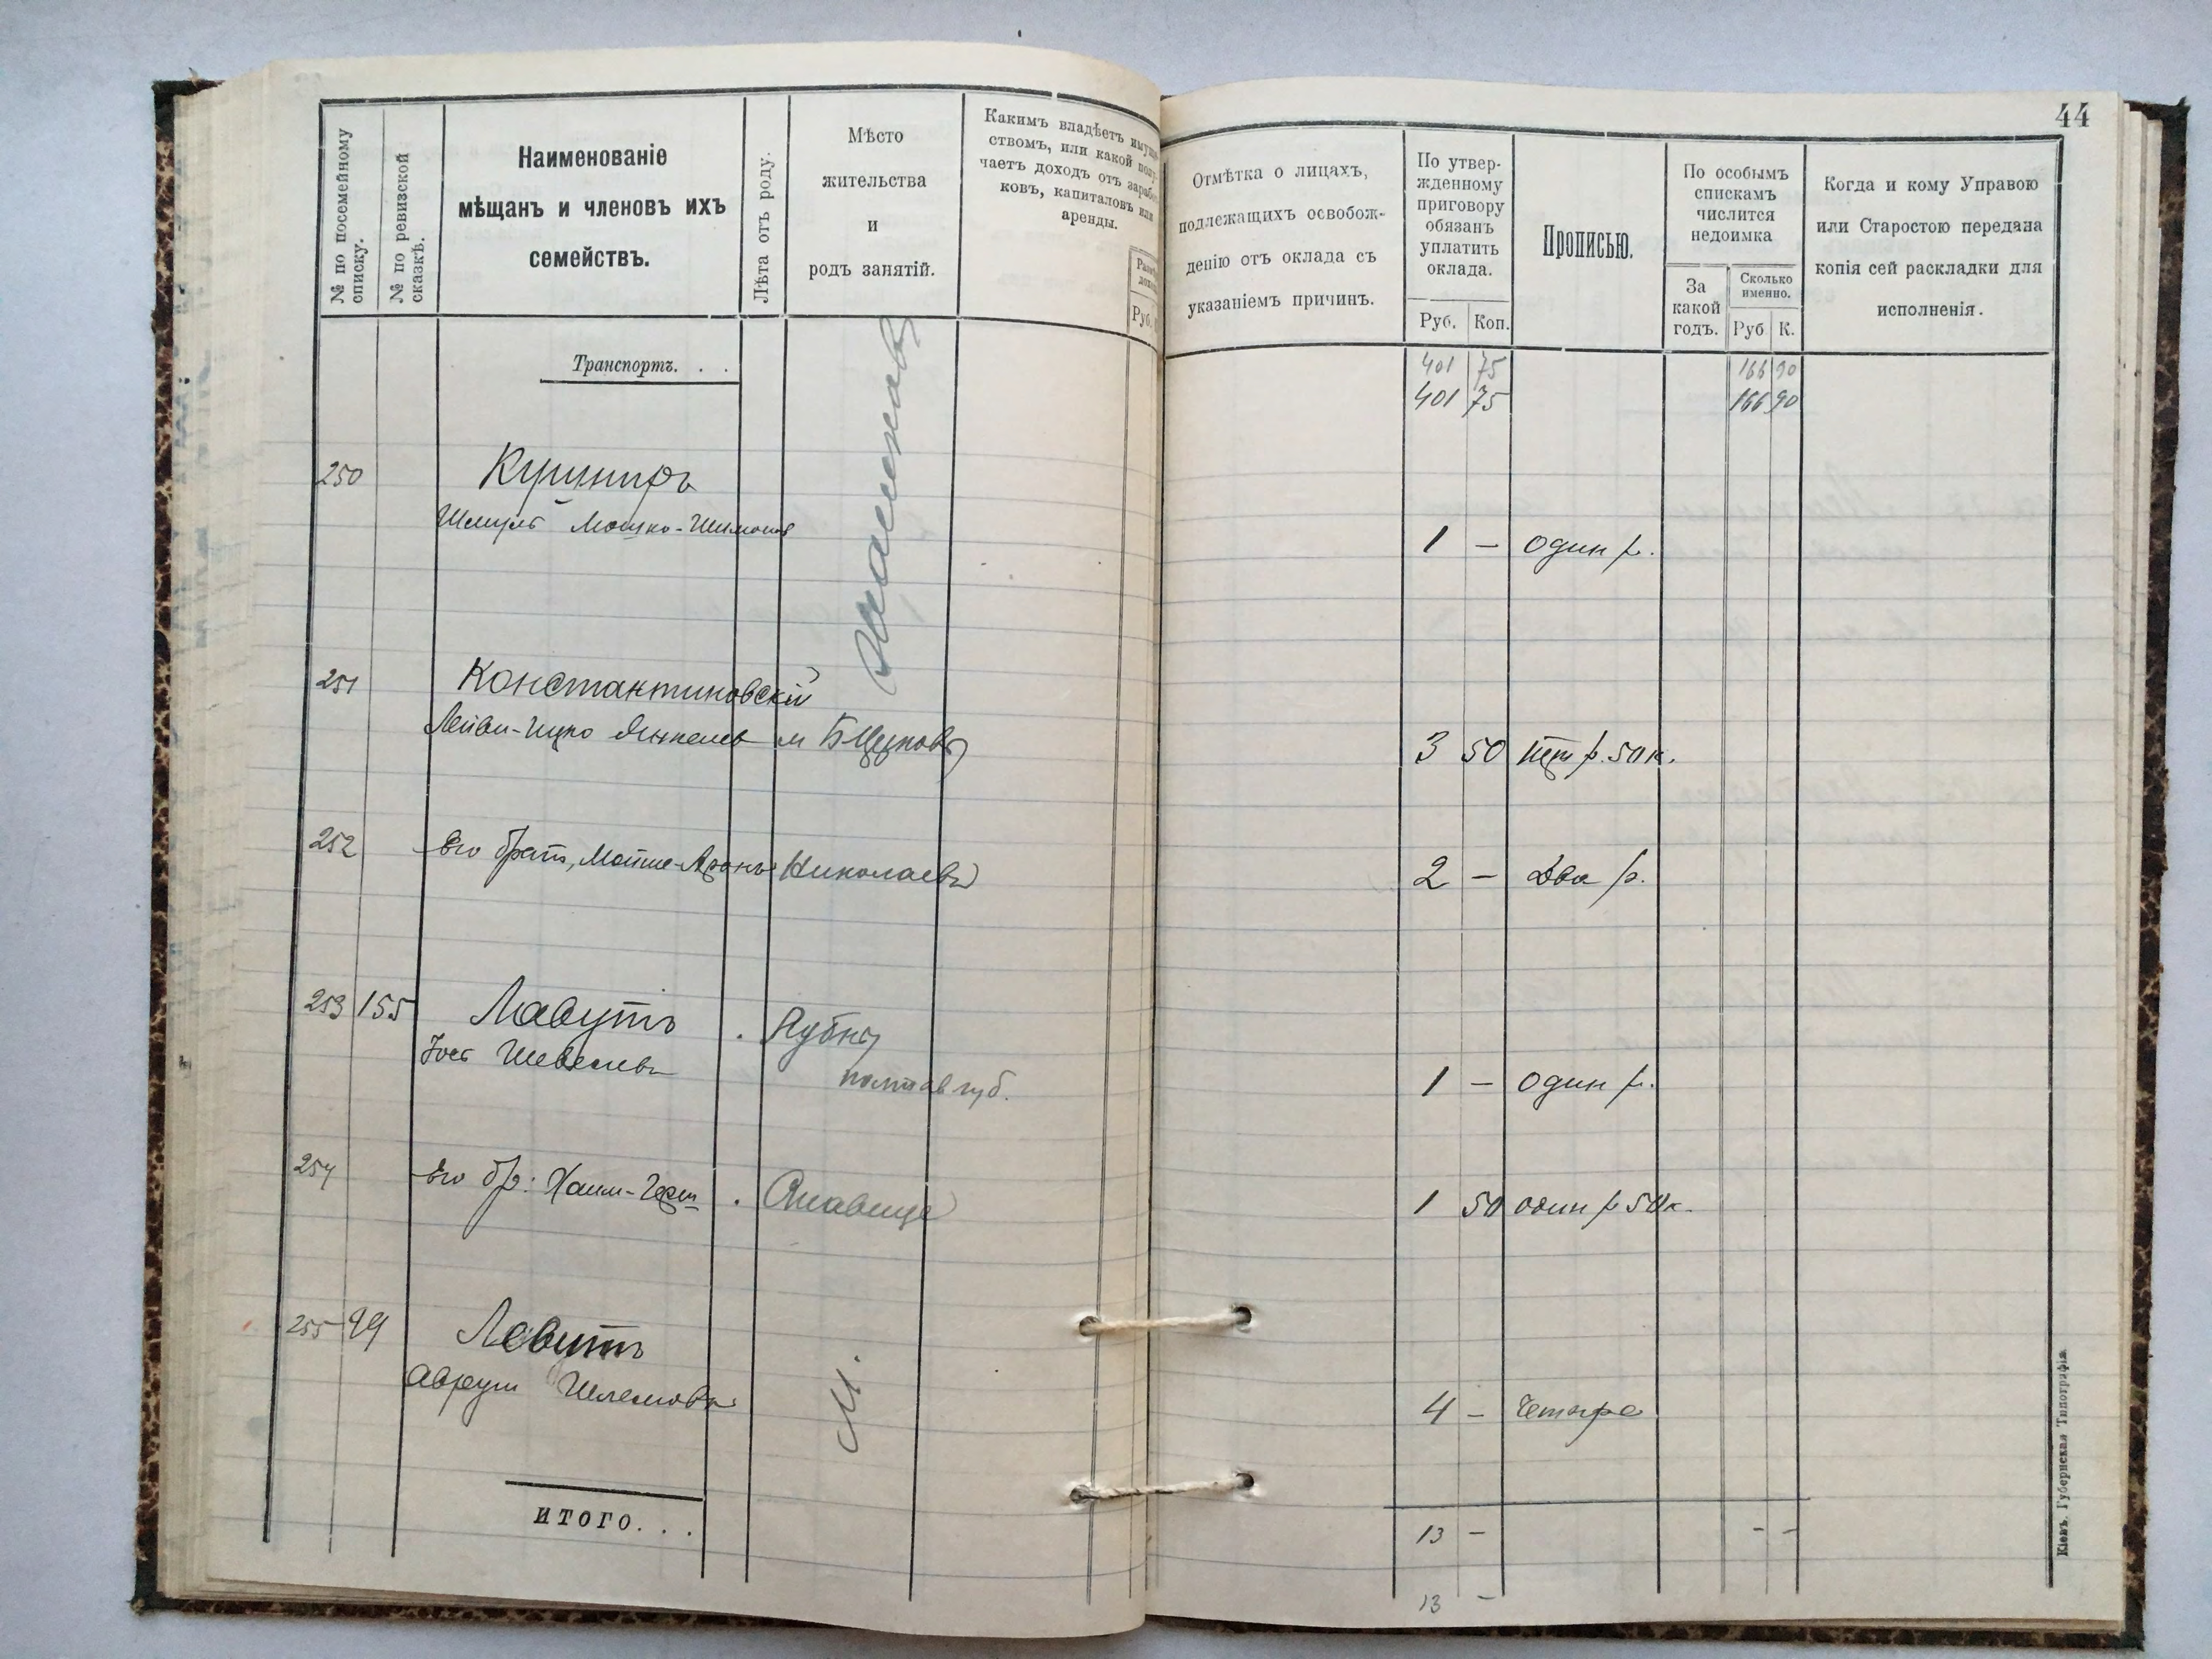 44
№ по посемейному
списку.
№ по ревизской
сказкѣ.
Наименованіе
мѣщанъ и членовъ ихъ
семействъ.
Лѣта отъ роду.
Мѣсто
жительства
и
родъ занятій.
Какимъ владѣетъ
ствомъ, или какой
чаетъ доходъ отъ
ковъ, капиталовъ или
аренды.
Руб.
Отмѣтка о лицахъ,
подлежащихъ освобож-
денію отъ оклада съ
указаніемъ причинъ.
По утвер-
жденному
приговору
обязанъ
уплатить
оклада.
Руб. Коп.
Прописью.
По особымъ
спискамъ
числится
недоимка
За
какой
годъ.
Сколько
именно.
Руб К.
Когда и кому Управою
или Старостою передана
копія сей раскладки для
исполненія.
Транспортъ. . .
401 75 166 90
401 75 166 90
250 Кушниръ
Шмуль Мошко-Шимонов 1 — один р.
251 Константиновскій
Лейви-Ицко Янкелев м 3 50 три р. 50 к.
252 Его братъ, Мойше-Аронъ Николаевъ 2 — Два р.
253 155 Лавутъ
Шевелевъ
полтав губ. 1 — один р.
254 Его бр: Хаим-Герш 1 50 один р 50 к.
255 99 Лавутъ
Аврум Шлемовъ М. 4 — Четыре
ИТОГО. . . 13 — - -
13 —
Кіевъ. Губернская Типографія